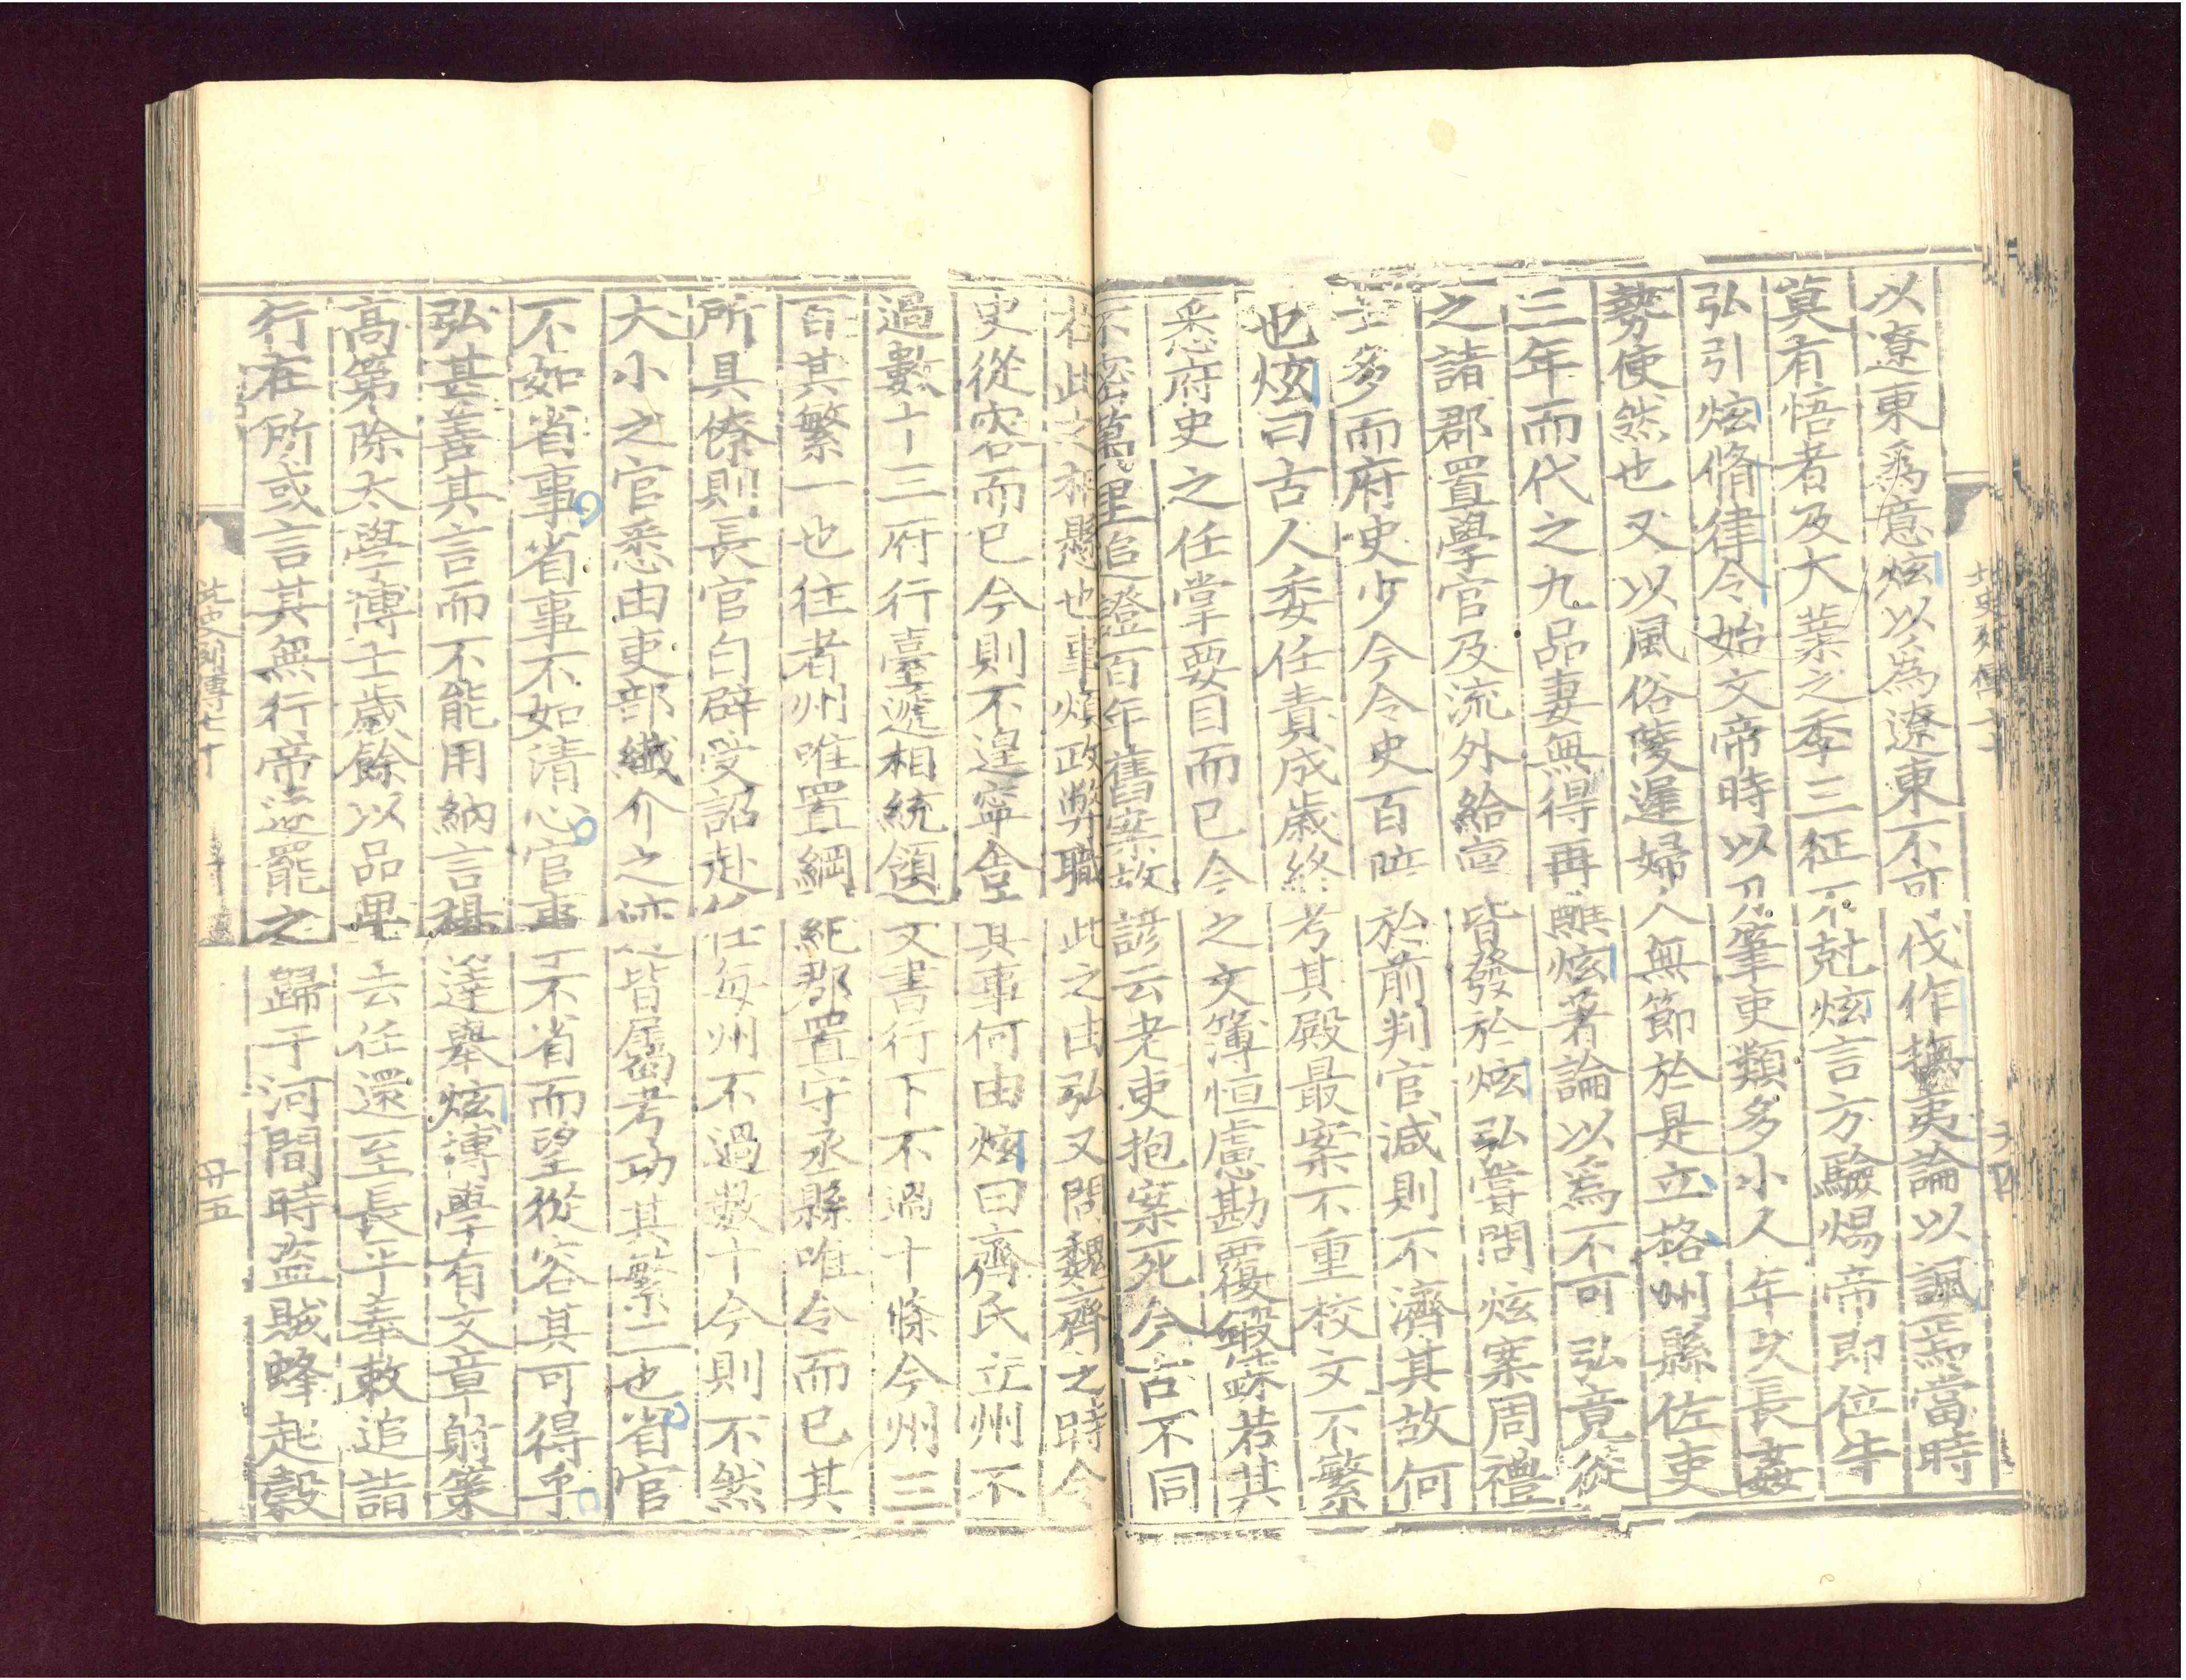 以遼東爲意炫以爲遼東不可伐作撫夷論以諷焉當時
莫有悟者及大業之季三征不尅炫言方驗煬帝即位牛
弘引炫脩律令始文帝時以刀筆吏類多小人年久長姦
勢使然也又以風俗陵遲婦人無節於是立格州縣佐吏
三年而代之九品妻無得再醮炫著論以爲不可弘竟從
之諸郡置學官及流外給廩皆發於炫弘嘗問炫案周禮
士多而府史少今令史百倍於前判官減則不濟其故何
也炫曰古人委任責成歲終考其殿最案不重校文不繁
悉府史之任掌要目而已今之文簿恒慮勘覆鍛錬若其
不密萬里追證百年舊案故諺云老吏抱案死今古不同
若此之相懸也事煩政弊職此之由弘又問魏齊之時令
史從容而已今則不遑寧舍其事何由炫曰齊氏立州不
過數十三府行臺遞相統領文書行下不過十條今州三
百其繁一也往者州唯置綱紀郡置守丞縣唯令而已其
所具僚則長官自辟受詔赴任每州不過數十今則不然
大小之官悉由吏部纖介之迹皆屬考功其繁二也省官
不如省事省事不如清心官事不省而望從容其可得乎
弘甚善其言而不能用納言楊達舉炫博學有文章射策
高第除太學博士歲餘以品卑去任還至長平奉敕追詣
行在所或言其無行帝遂罷之歸于河間時盜賊蜂起穀
北史列傳七十
廿五